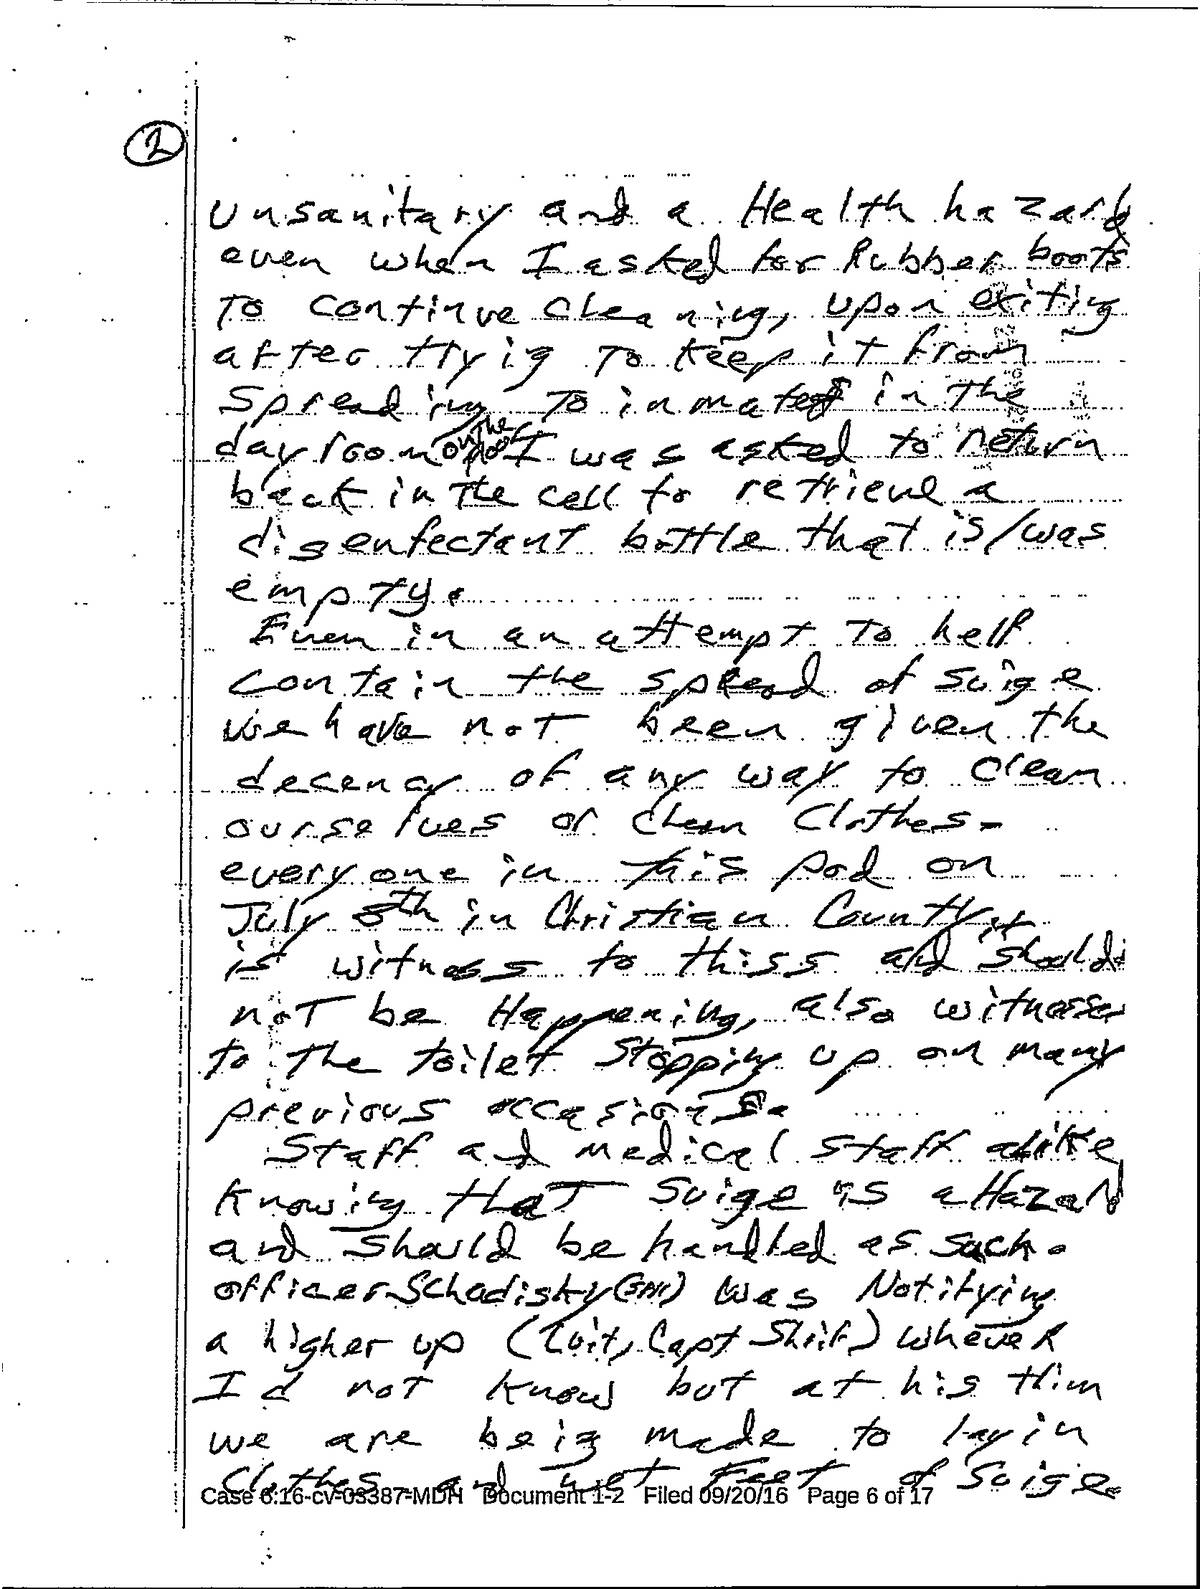 2
unsanitary and a Health hazard
even when I asked for Rubber boots
To continue cleaning, upon exiting
after tryig To keep it from
spreading To inmates in the
day room on the floor I was asked to return
back in the cell to retrieve a
disenfectant bottle that is/was
empty.
Even in an attempt To help
contain the spread of suige
we have not been given the
decency of any way to clean
ourselves or clean Clothes-
everyone in this pod on
July 8th in Christian County,
is witness to thiss and should
not be Happening, also witnesses
to the toilet stopping up on many
previous occasions.
Staff and medical staff alike
knowing that suige is a Hazard
and should be handled as such.
officer Schadisky was Notifying
a higher up (Luit, Capt Shrif) whever
I d not know but at his thim
we are beig made to lay in
Clothes and wet Feet of Suige
Case 6:16-cv-03387-MDH Document 1-2 Filed 09/20/16 Page 6 of 17